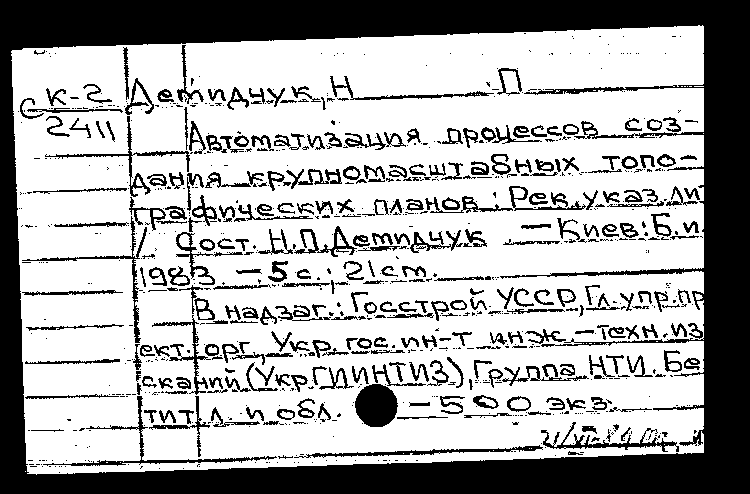 С К-2 Демидчук, Н П
2411
Автоматизация процессов соз-
дания крупномасштабных топо-
графических планов : Рек. указ. ли
/ Сост. Н.П. Демидчук — Киев: Б.и.
1983. — 5 с.; 21 см.
В надзаг.: Госстрой УССР, Гл. упр. пр
ект. орг., Укр. гос. ин-т инж.-техн. из
сканий (УкрГИИНТИЗ), Группа НТИ. Бе
тит. л. и обл. — 500 экз.